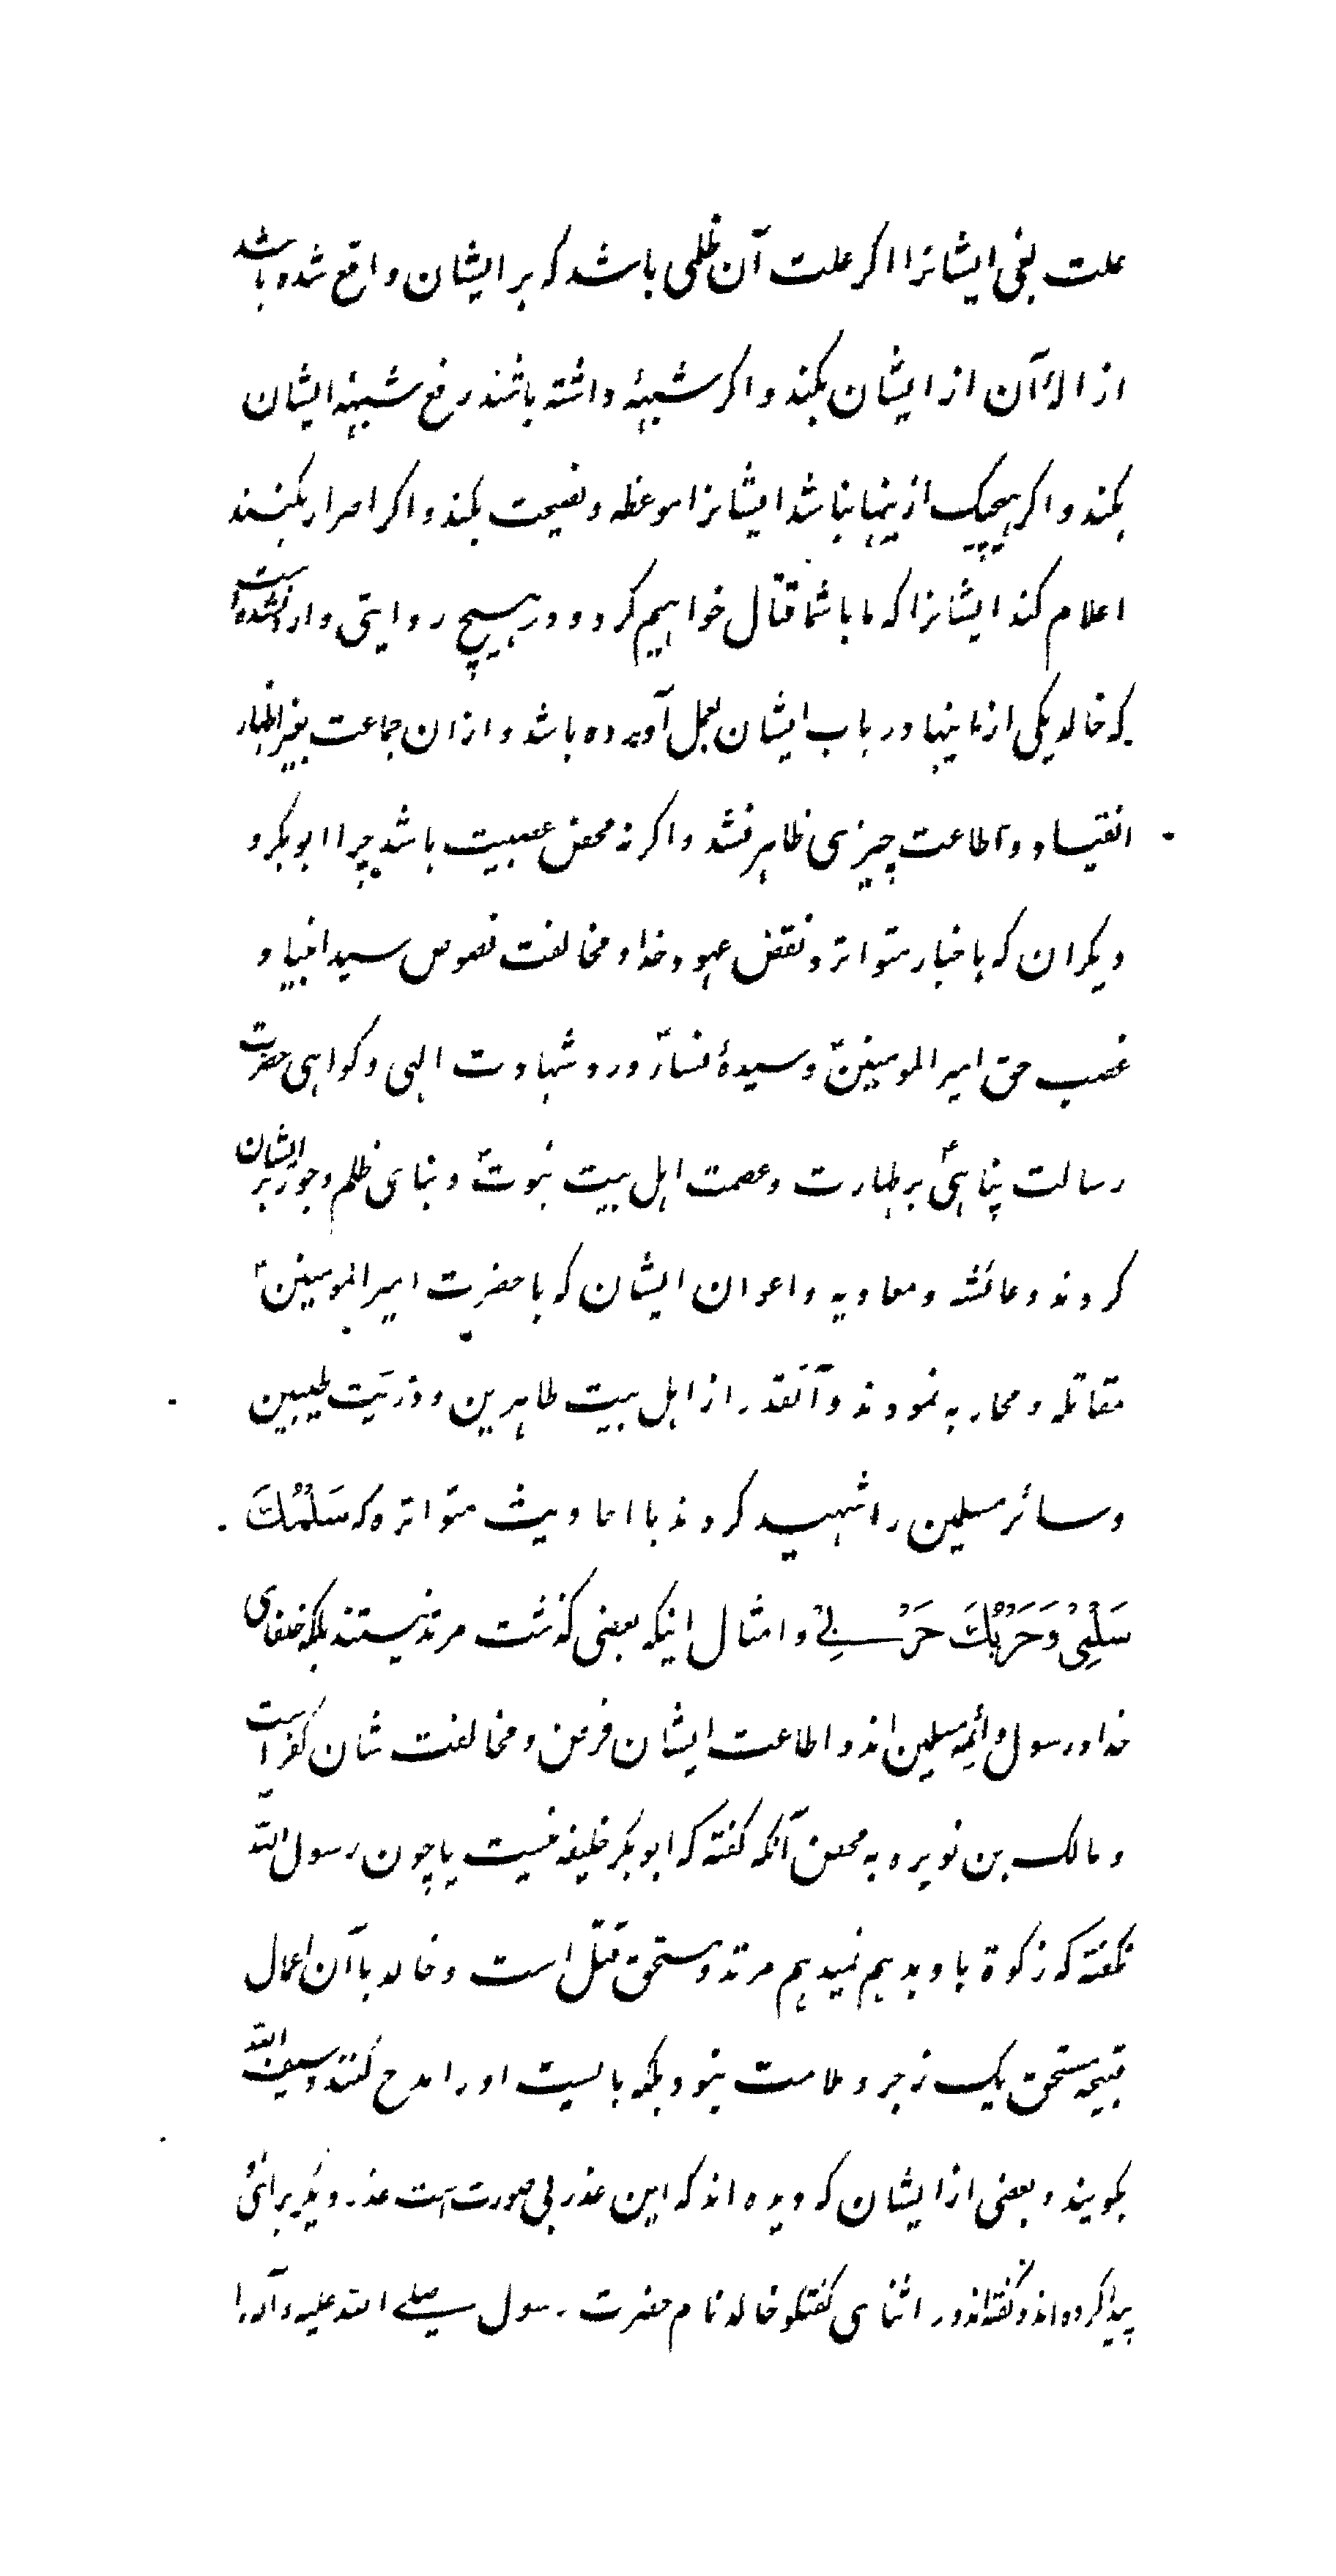 علت بغی ایشانرا اکر علت آن ظلمی باشد که بر ایشان واقع شده باشد
ازالهٔ آن از ایشان بکند و اکر شبههٔ داشته باشند رفع شبههٔ ایشان
بکند و اکر هیچیک ازینها نباشد ایشانرا موعظه و نصیحت بکند و اکر اصرار بکنند
اعلام کند ایشانرا که ما با شما قتال خواهیم کرد و در هیچ روایتی وارد نشده است
که خالد یکی ازاینها در باب ایشان بعمل آورده باشد و ازان جماعت بغیر اظهار
انقیاد و اطاعت چیزی ظاهر نشد و اکر نه محض عصبیت باشد چرا ابو بکر و
دیکران که باخبار متواتر و نقض عهود خدا و مخالفت نصوص سید انبیا و
غصب حق امیر المومنینؑ و سیدهٔ نساءؑ و رد شهادت الهی و کواهی حضرت
رسالت پناهیؐ بر طهارت و عصمت اهل بیت نبوتؑ و بنای ظلم و جور بر ایشان
کردند و عائشه و معاویه و اعوان ایشان که با حضرت امیر المومنینؑ
مقاتله و محاربه نمودند و آنقدر از اهل بیت طاهرین و ذریت طیبین
و سائر مسلمین را شهید کردند با احادیث متواتره که سَلْمُكَ
سَلْمِیْ وَحَرْبُكَ حَرْبِیْ و امثال اینکه بعضی کذشت مرتد نیستند بلکه خلفای
خدا و رسول و ائمه مسلمین اند و اطاعت ایشان فرض و مخالفت شان کفر است
و مالک بن نویره به محض آنکه کفته که ابو بکر خلیفه نیست یا چون رسول الله
نکفته که زکوة باو بدهیم نمیدهیم مرتد و مستحق قتل است و خالد با آن اعمال
قبیحه مستحق یک زجر و ملامت نبود بلکه بایست او را مدح کنند و سیف الله
بکویند و بعضی از ایشان که دیده اند که این عذر بی صورت است عذر دیکر برای او
پیدا کرده اند و کفته اند در اثنای کفتکو خالد نام حضرت رسول صلی الله علیه و آله را